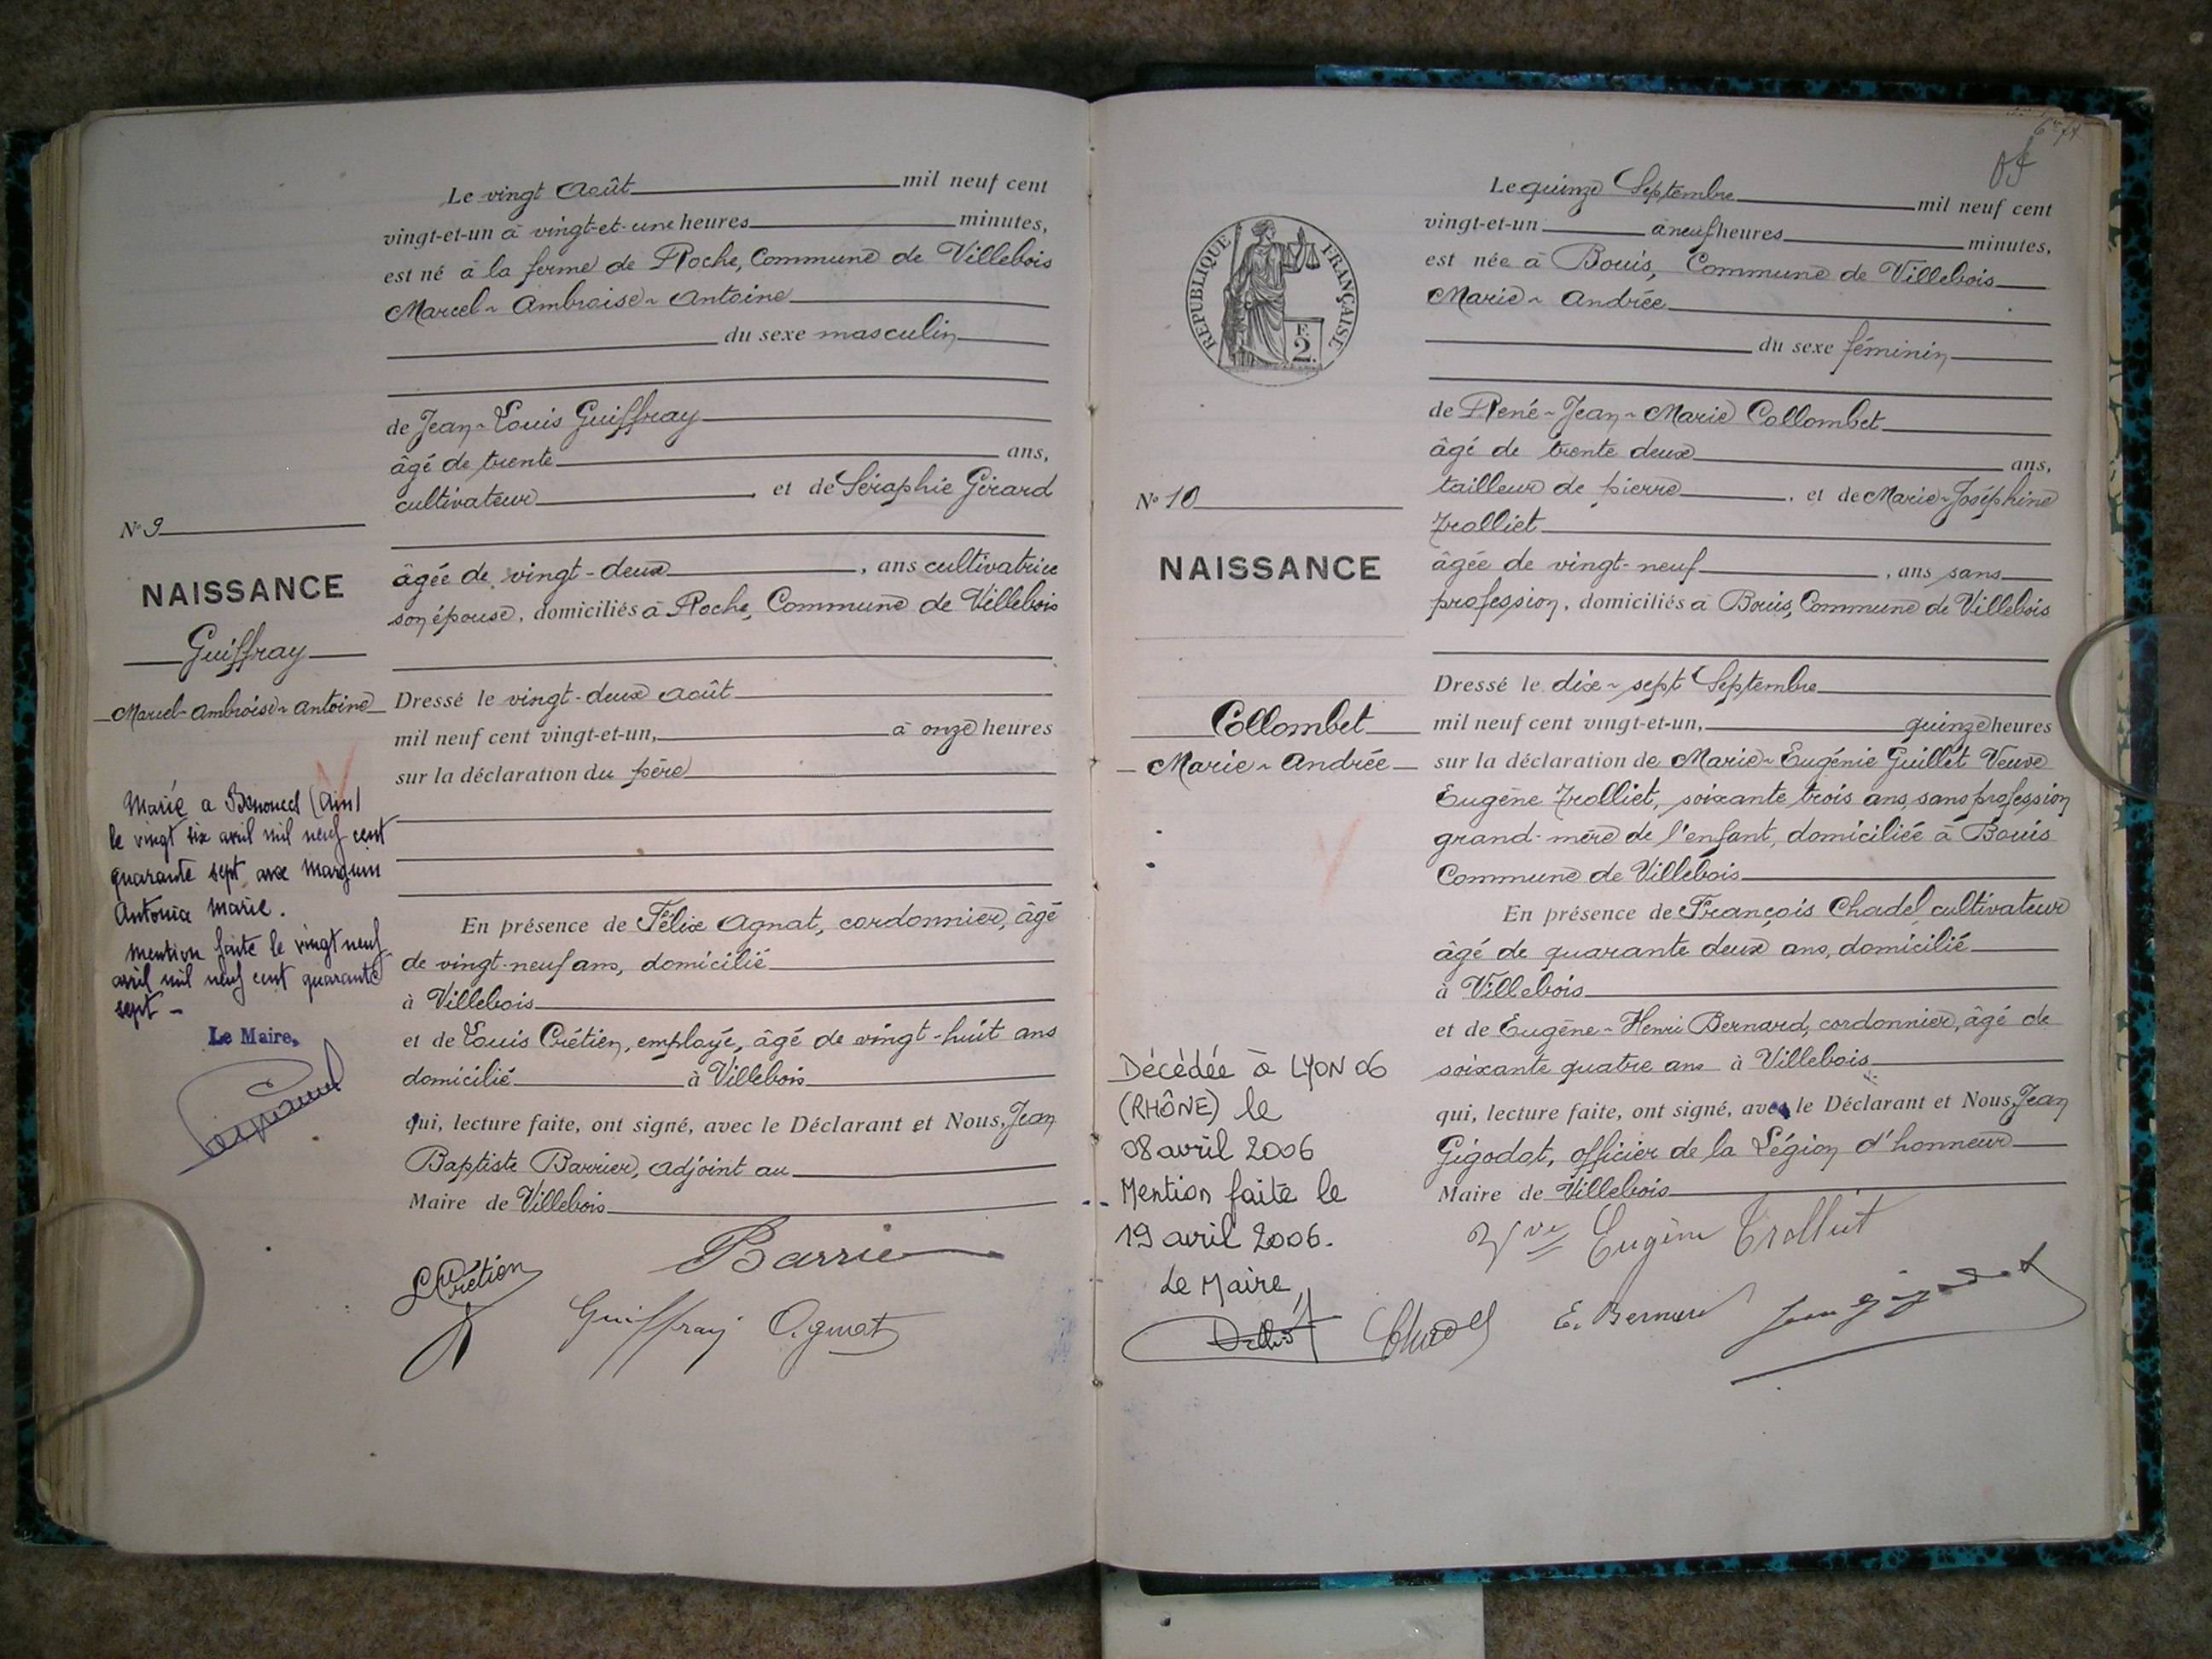 Le vingt Août mil neuf cent
vingt-et-un à vingt-et-une heures minutes,
est né à la ferme de Roche, Commune de Villebois
Marcel-Ambroise-Antoine
du sexe masculin
de Jean-Louis Guiffray
âgé de trente ans,
cultivateur, et de Séraphie Gérard
âgée de vingt-deux, ans cultivatrice
son épouse, domiciliés à Roche, Commune de Villebois
Dressé le vingt-deux août
mil neuf cent vingt-et-un, à onze heures
sur la déclaration du père
En présence de Félix Agnat, cordonnier, âgé
de vingt-neuf ans, domicilié
à Villebois
et de Louis Crétien, employé, âgé de vingt-huit ans
domicilié à Villebois
qui, lecture faite, ont signé, avec le Déclarant et Nous, Jean
Baptiste Barrier, adjoint au
Maire de Villebois
L Crétien
Barrier
Guiffray Agnat
N° 9
NAISSANCE
Guiffray
Marcel-Ambroise-Antoine
Marié a (Ain)
le vingt six avril mil neuf cent
quarante sept avec Marguin
Antonia Marie.
Mention faite le vingt neuf
avril mil neuf cent quarante
sept -
Le Maire,
Le quinze Septembre mil neuf cent
vingt-et-un à neuf heures minutes,
est née à Bouis, Commune de Villebois
Marie-Andrée
du sexe féminin
de René-Jean-Marie Collombet
âgé de trente deux ans,
tailleur de pierre, et de Marie-Joséphine
Trolliet
âgée de vingt-neuf, ans sans
profession, domiciliés à Bouis, Commune de Villebois
Dressé le dix-sept Septembre
mil neuf cent vingt-et-un, quinze heures
sur la déclaration de Marie-Eugénie Guillet Veuve
Eugène Trolliet, soixante trois ans, sans profession
grand-mère de l'enfant, domiciliée à Bouis
Commune de Villebois
En présence de François Chadel, cultivateur
âgé de quarante deux ans, domicilié
à Villebois
et de Eugène-Henri Bernard, cordonnier, âgé de
soixante quatre ans à Villebois
qui, lecture faite, ont signé, avec le Déclarant et Nous, Jean
Gigodot, officier de la Légion d'honneur
Maire de Villebois
Vve Eugène Trolliet
Chadel E. Bernard Jean Gigodot
RÉPUBLIQUE FRANÇAISE
F.
2.
N° 10
NAISSANCE
Collombet
Marie-Andrée
Décédée à LYON 06
(RHÔNE) le
08 avril 2006
Mention faite le
19 avril 2006.
Le Maire,